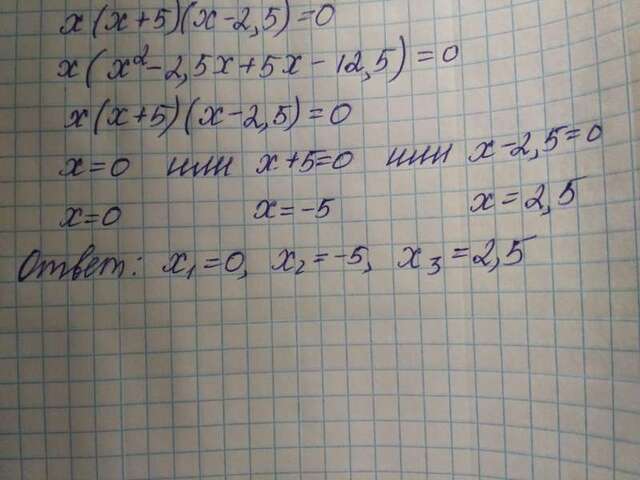 x(x+5)(x-2,5)=0
x(x²-2,5x+5x-12,5)=0
x(x+5)(x-2,5)=0
x=0 или x+5=0 или x-2,5=0
x=0 x=-5 x=2,5
Ответ: x₁=0, x₂=-5, x₃=2,5